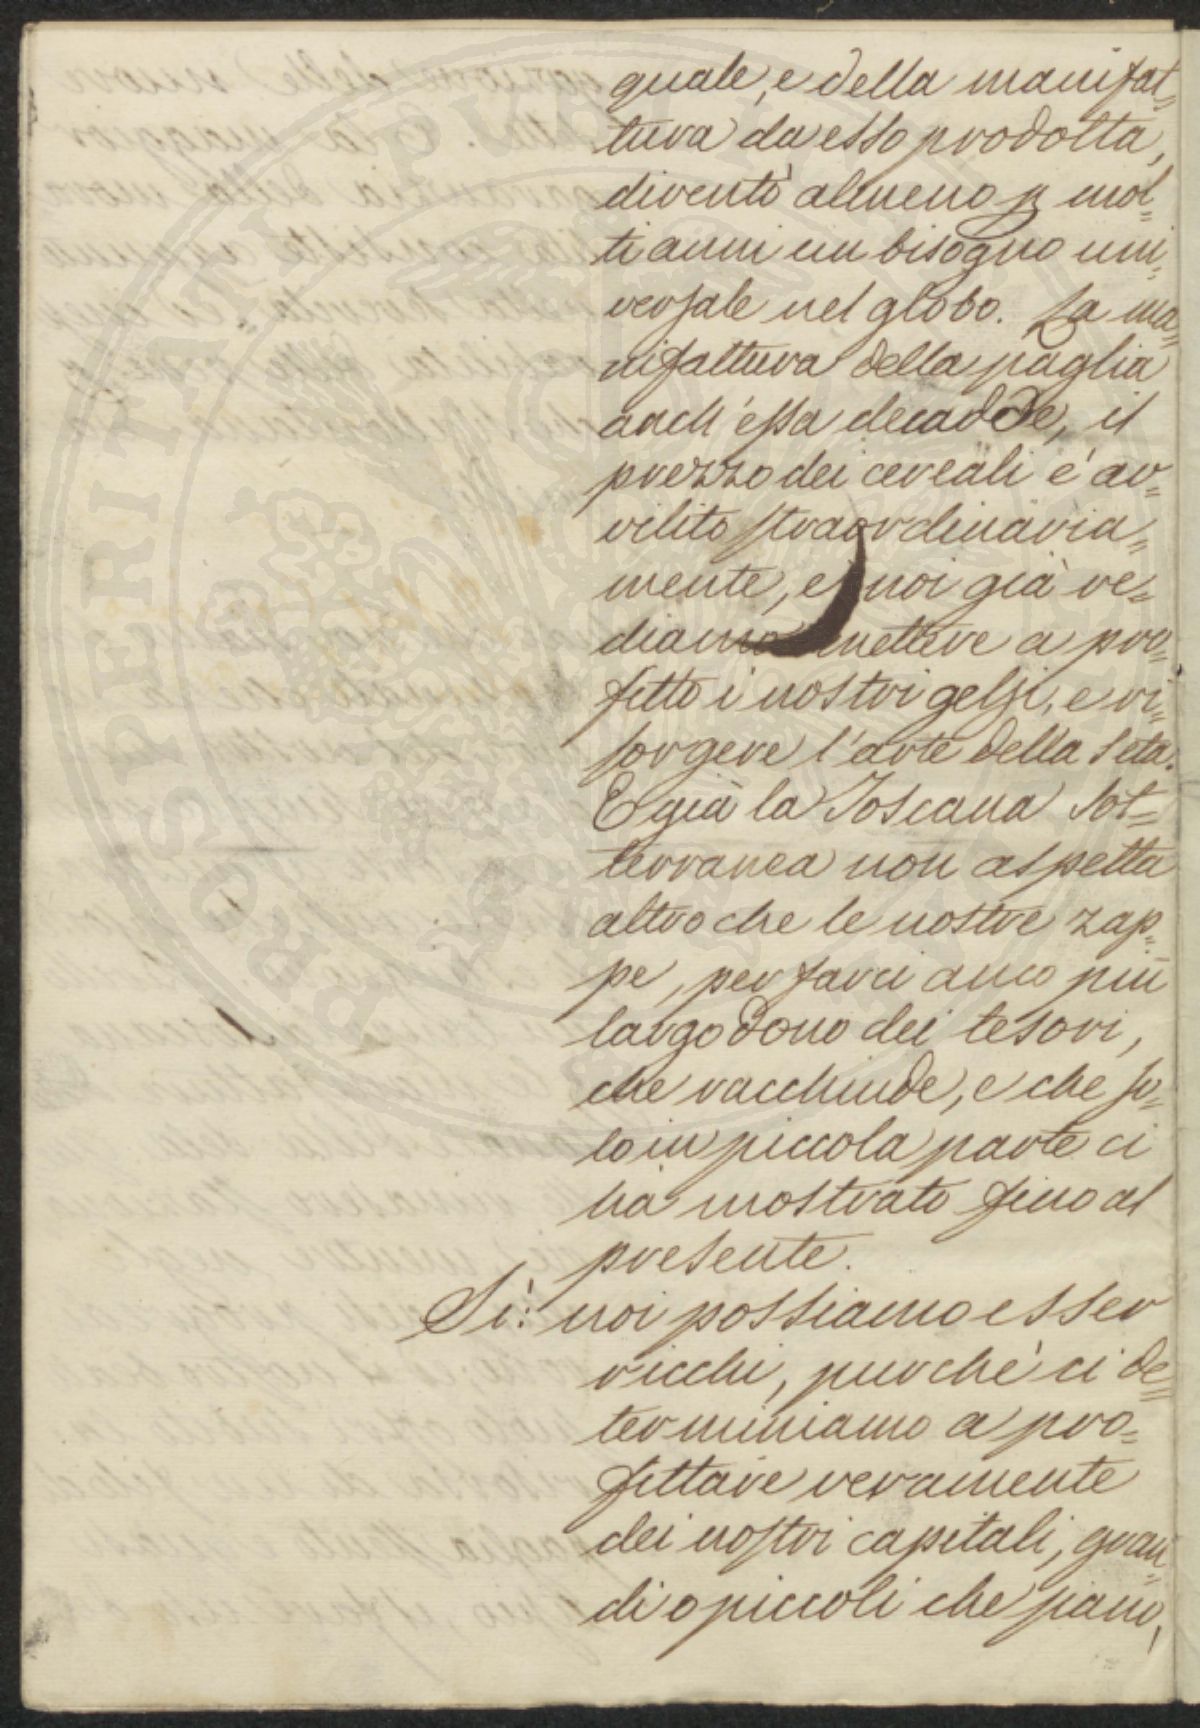 quale, e della manifat=
tura da esso prodotta,
diventò almeno p mol=
ti anni un bisogno uni=
versale nel globo. La ma=
nifattura della paglia
anch'essa decadde, il
prezzo dei cereali è av=
vilito straordinaria=
mente, e noi già ve=
diamo mettere a pro=
fitto i nostri gelsi, e ri=
sorgere l'arte della seta.
E già la Toscana sot=
terranea non aspetta
altro che le nostre zap=
pe, per farci anco più
largo dono dei tesori,
che racchiude, e che so=
lo in piccola parte ci
ha mostrato fino al
presente.
Sì: noi possiamo esser
ricchi, purchè ci de=
terminiamo a pro=
fittare veramente
dei nostri capitali, gran=
di o piccoli che siano,
PROSPERITATI PUBLICAE